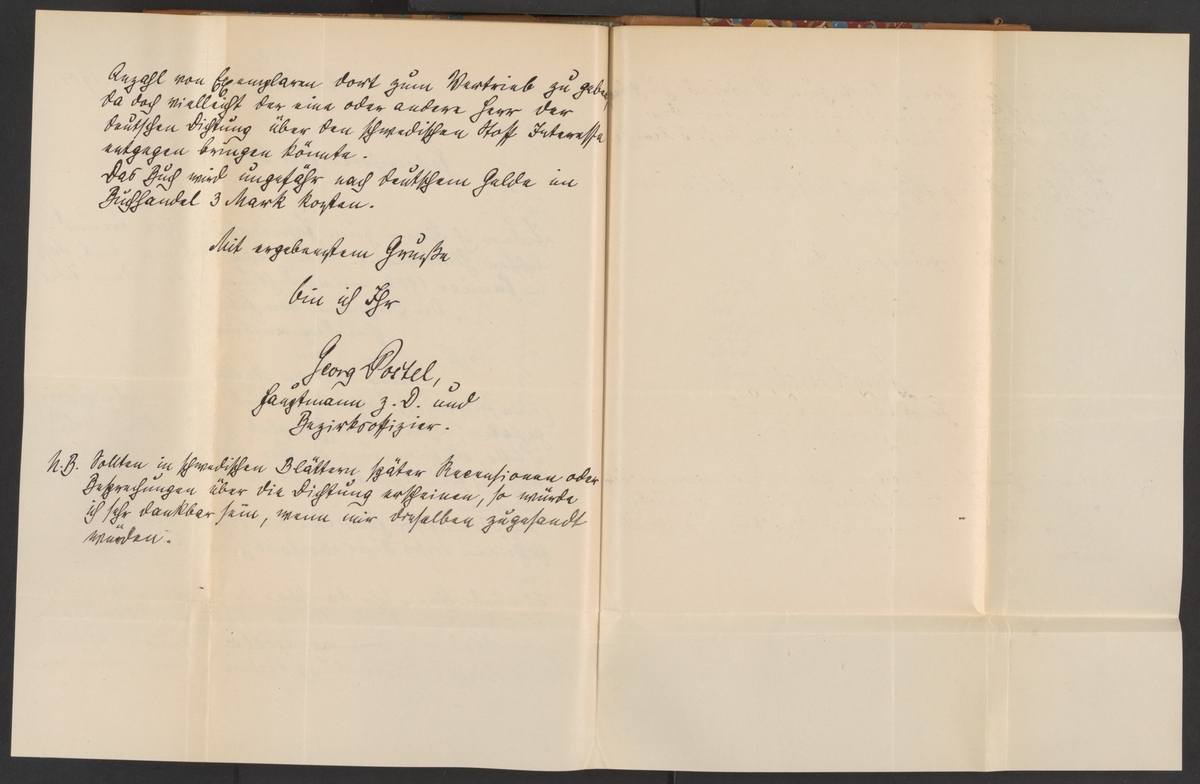 Anzahl von Exemplaren dort zum Vertrieb zu geben,
da doch vielleicht der eine oder andere Herr der
deutschen Dichtung über den schwedischen Stoff Interesse
entgegen bringen könnte.
Das Buch wird ungefähr nach deutschem Gelde im
Buchhandel 3 Mark kosten.
Mit ergebenstem Gruße
bin ich Ihr
Georg Postel,
Hauptmann z. D. und
Bezirksoffizier.
N.B. Sollten in schwedischen Blättern später Recensionen oder
Besprechungen über die Dichtung erscheinen, so würde
ich sehr dankbar sein, wenn mir dieselben zugesandt
würden.